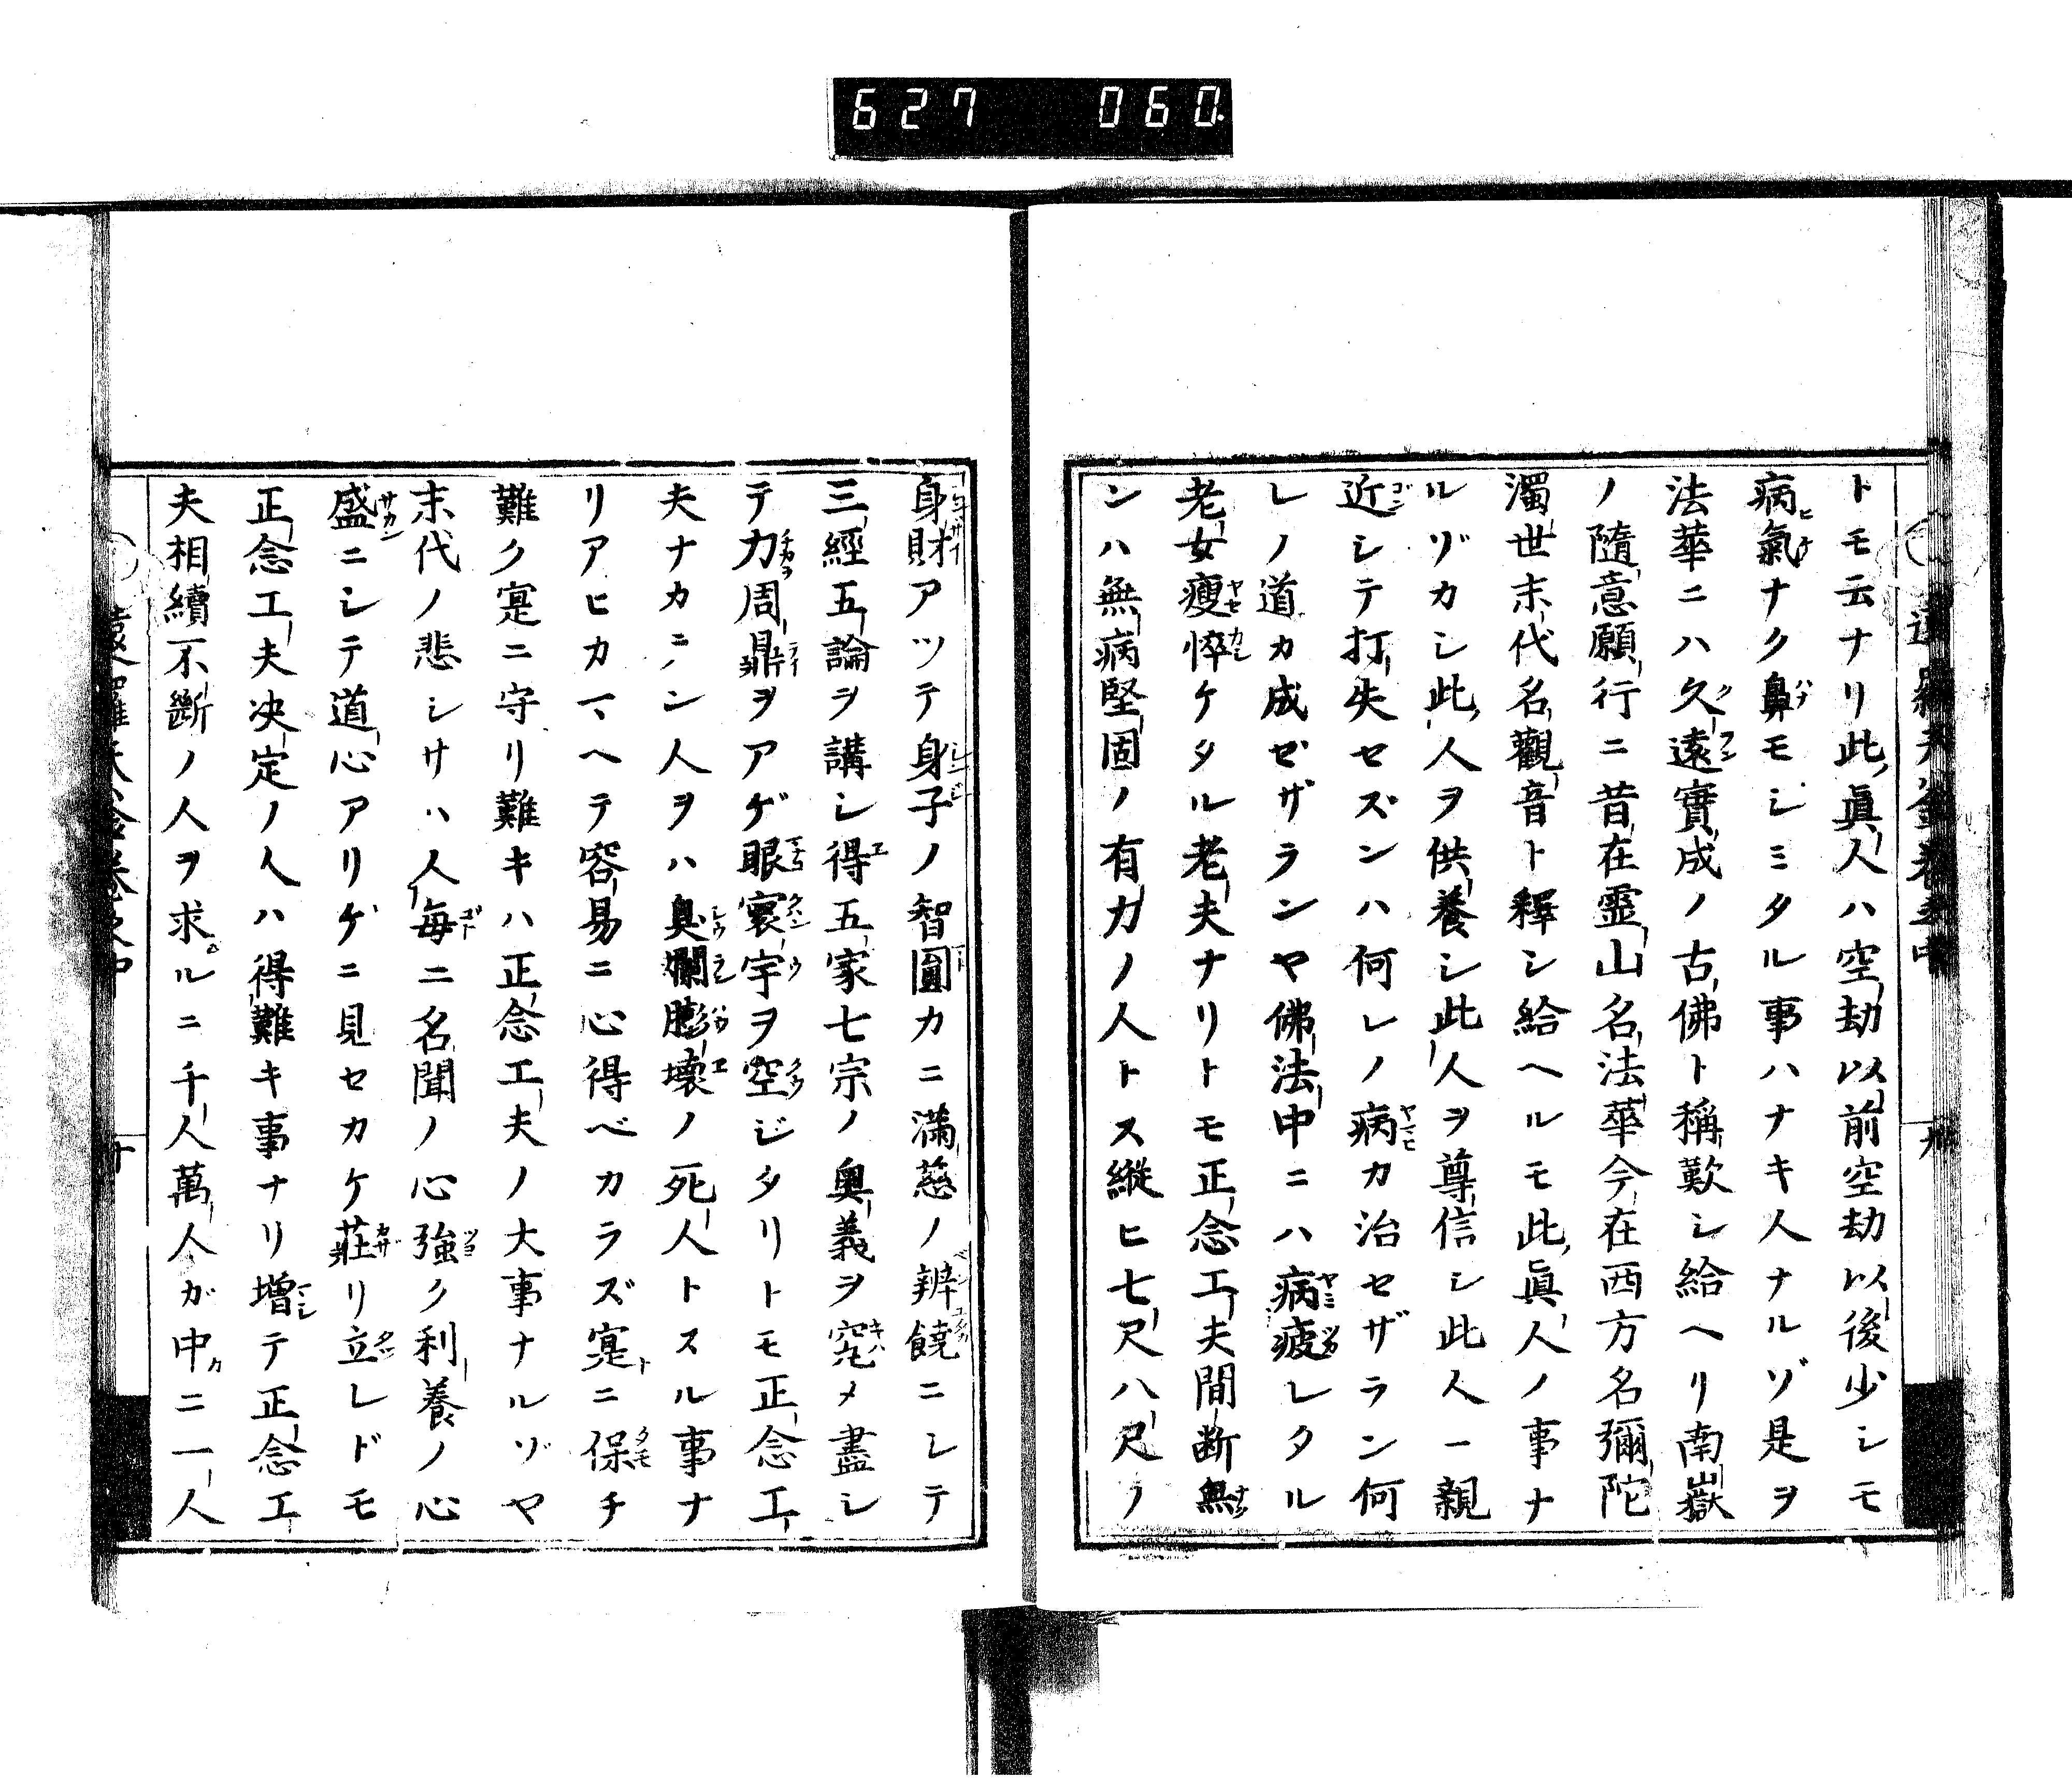 627 060
トモ云ナリ此眞人ハ空劫以前空劫以後少シモ
病氣ナク鼻モシミタル事ハナキ人ナルゾ是ヲ
法華ニハ久遠實成ノ古佛ト稱歎シ給ヘリ南嶽
ノ隨意願行ニ昔在靈山名法華今在西方名彌陀
濁世末代名觀音ト釋シ給ヘルモ此眞人ノ事ナ
ルゾカシ此人ヲ供養シ此人ヲ尊信シ此人一親
近シテ打失セズンハ何レノ病カ治セザラン何
レノ道カ成ゼザランヤ佛法中ニハ病疲レタル
老女瘦悴ケタル老夫ナリトモ正念工夫間断無
ンハ無病堅固ノ有力ノ人トス縦ヒ七尺八尺ノ
身財アツテ身子ノ智圓カニ滿慈ノ辨饒ニシテ
三經五論ヲ講シ得五家七宗ノ奥義ヲ究メ盡シ
テ力周鼎ヲアゲ眼寰宇ヲ空ジタリトモ正念工
夫ナカラン人ヲハ臭爛膨壊ノ死人トスル事ナ
リアヒカマヘテ容易ニ心得ベカラズ寔ニ保チ
難ク寔ニ守リ難キハ正念工夫ノ大事ナルゾヤ
末代ノ悲シサハ人每ニ名聞ノ心強ク利養ノ心
盛ニシテ道心アリゲニ見セカケ莊リ立レドモ
正念工夫决定ノ人ハ得難キ事ナリ增テ正念工
夫相續不斷ノ人ヲ求ルニ千人萬人が中ニ一人